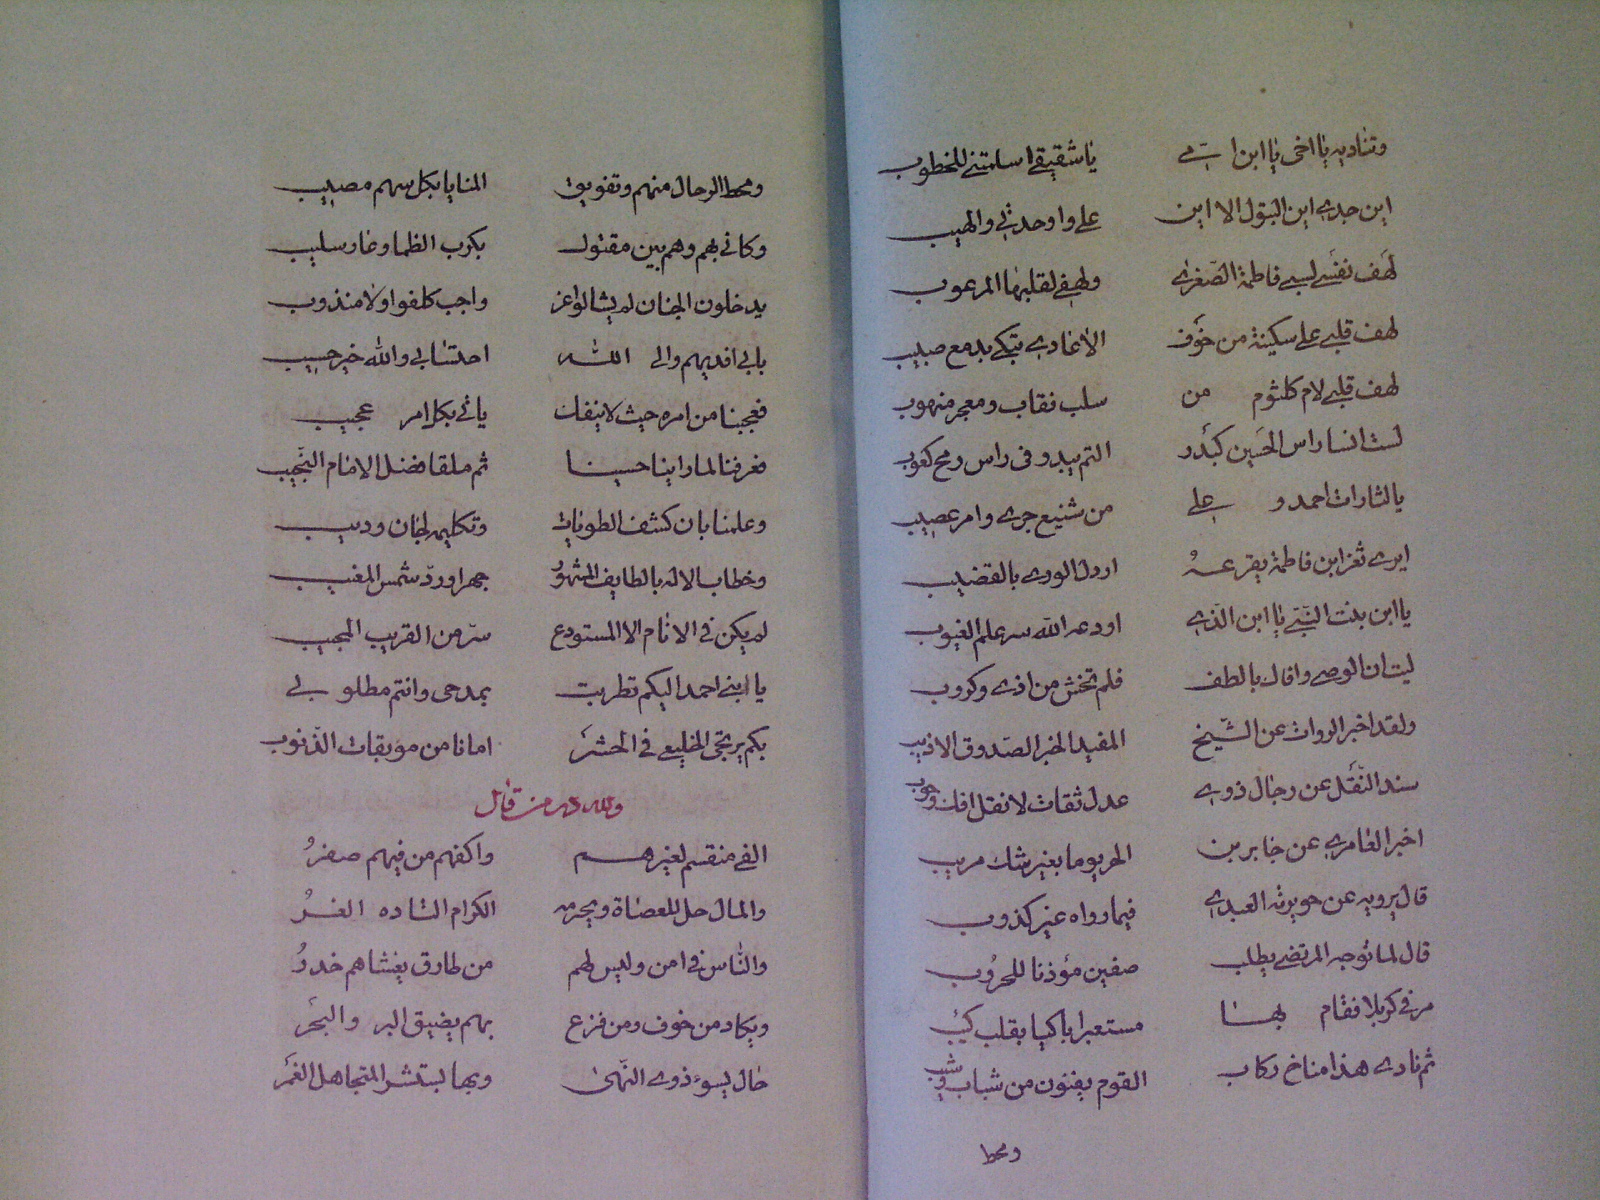 وتناديه يا اخي يا ابن امي يا شقيقي اسلمتني للخطوب
اين جدي اين البتول الا اين علي وا وحدتي والهيب
لهف نفسي لسبي فاطمة الصغرى ولهفي لقلبها المرعوب
لهف قلبي على سكينة من خوف الاعادي تبكي بدمع صبيب
لهف قلبي لام كلثوم من سلب نقاب ومعجر منهوب
لست انسا راس الحسين كبدر التم يبدو في راس رمح كعوب
يا لثارات احمد و علي من شنيع جرى وامر عصيب
ايرى ثغر ابن فاطمة يقرعه ارذل الورى بالقضيب
يا ابن بنت النبي يا ابن الذي اودعه الله سر علم الغيوب
ليت ان الوصي وافاك بالطف فلم تخش من اذى وكروب
ولقد اخبر الروات عن الشيخ المفيد الخبر الصدوق الاديب
سند النقل عن رجال ذوي عدل ثقات لا نقل افك وحوب
اخبر العامري عن جابر بن الحر يوما بغير شك مريب
قال يرويه عن جويرثه العبدي فيما رواه غير كذوب
قال لما توجه المرتضى يطلب صفين مؤذنا للحروب
مر في كربلا فقام بها مستعبرا باكيا بقلب كئيب
ثم نادى هذا مناخ ركاب القوم يفنون من شباب وشيب
ومحط
ومحط الرحال منهم وتفويق المنايا بكل سهم مصيب
وكاني بهم وهم بين مقتول بكرب الظما وعار سليب
يدخلون الجنان لم يسالوا عن واجب كلفوا ولا مندوب
بابي افديهم والى الله احتسابي والله خير حسيب
فعجبنا من امره حيث لا ينفك ياتي بكل امر عجيب
فعرفنا لما راينا حسينا ثم ملقا فضل الامام النجيب
وعلمنا بان كشف الطويات وتكليم لجان وذيب
وخطاب الاله بالطايف المشهور جهرا ورد شمس المغيب
لم يكن في الانام الا المستودع سر من القريب المجيب
يا ابني احمد اليكم تطربت بمدحي وانتم مطلوبي
بكم يرتجى الخليعي في الحشر امانا من موبقات الذنوب
ولله در من قائل
الفي منقسم لغيرهم واكفهم من فيهم صفر
والمال حل للعصاة ويحرمه الكرام الساده الغر
والناس في امن وليس لهم من طارق يغشاهم حذر
ويكاد من خوف ومن فزع بهم يضيق البر والبحر
حال يسوء ذوي النهى وبها يستبشر المتجاهل الغمر